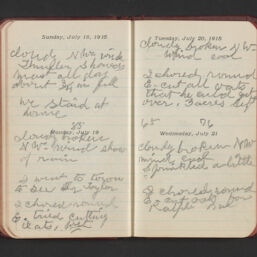 Sunday, July 18, 1915
cloudy N W. wind
Thunder showers
most all day
about 3/4 in fell
we staid at
home
85
Monday, July 19
cloudy broken
N W. wind show
of rain
I went to town
to see Dr Taylor
I chored round
E. tried cutting
Oats, wet
Tuesday, July 20, 1915
cloudy broken N W.
wind cool
I chored round
E. cut all oats
that he could get
over, 3 acres
65 76
Wednesday, July 21
cloudy broken N W.
wind cool
Sprinkled a little
I chored round
E. cut oats for
Ralph